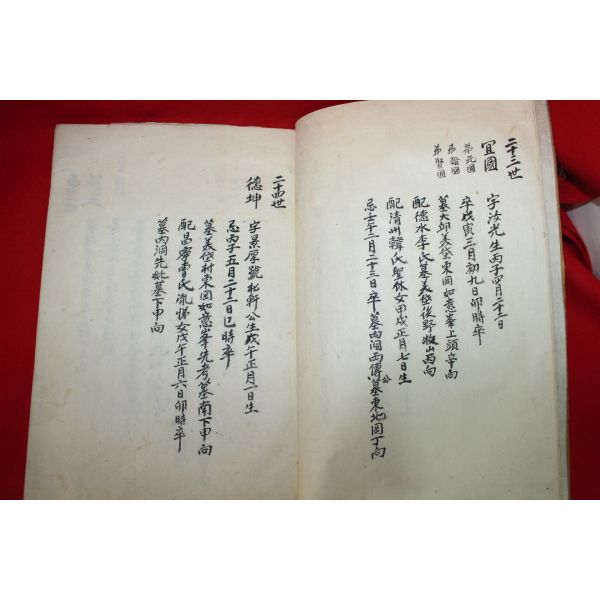 二十三世
宜國
弟元國
弟 國
弟賢國
字汝光生丙子四月二十二日
卒戊寅三月初九日卯時卒
墓大邱美岱東岡如意峯上頭辛向
配德水李氏墓美岱後野牧山丙向
配淸州韓氏聖休女甲戌正月七日生
忌壬午二月二十三日卒墓內洞西傳公墓東地図丁向
二十四世
德坤
字景厚號松軒公生戊午正月一日生
忌丙子五月二十二日巳時卒
墓美岱村東岡如意峯先考墓南下甲向
配昌寧曺氏 悌女戊午正月六日卯時卒
墓內洞先妣墓下甲向